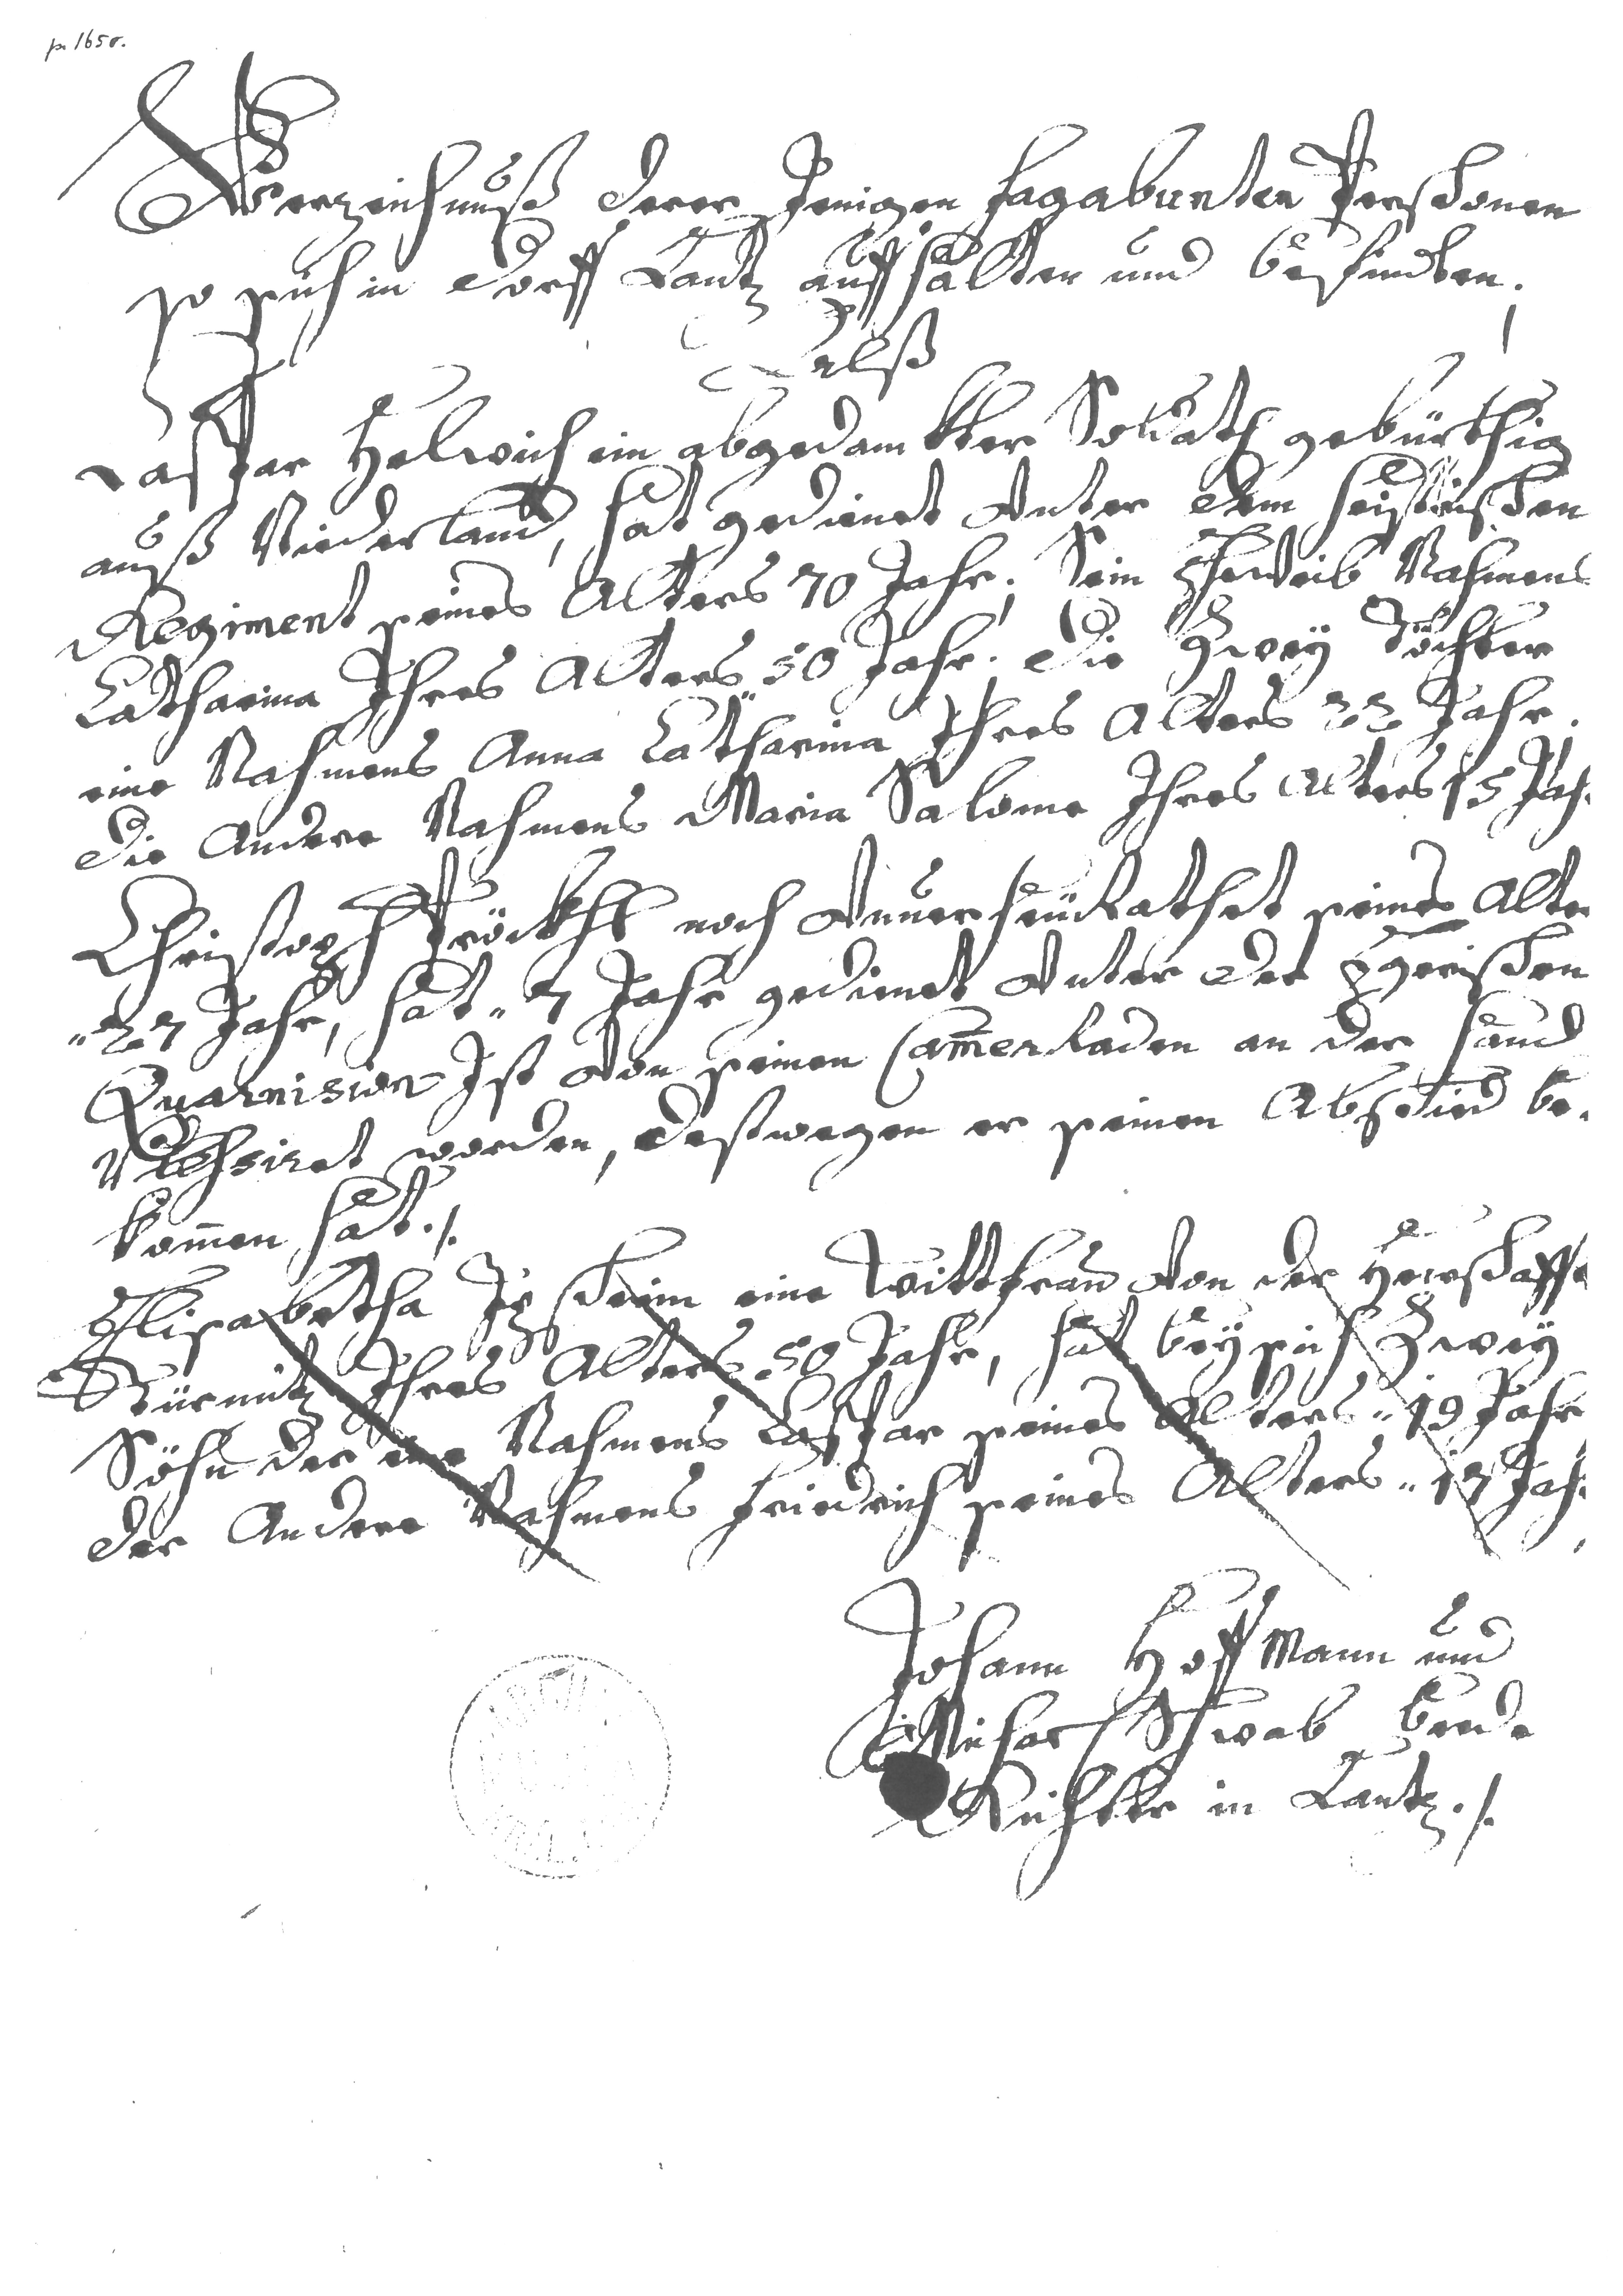 p. 165v.
Verzeichnuß derer Jenigen fagabunten Perschonen
so sich in Dorff Lantz auffhalten und befindten.
Alß
Caspar Helwich ein abgedamkter Soldath gebürthig
auß Niederland, hat gedienet Unter dem
Regiment seines Alters 70 Jahr; Sein Eheweib Nahmens
Catharina Ihres Alters 50 Jahr. die Zwey Töchter
eine Nahmens Anna Catharina Ihres Alters 22 Jahr.
die Andere Nahmens Maria Salome Ihres Alters 15 Jah.
Christoph noch Unuerheürathet seines Alters
27 Jahr, hat 7 Jahr gedienet Unter der Egerischen
Quarnision Ist Von seinen Camerraden an der Hand
worden, destwegen er seinen Abschied be-
komen hat ./.
Elisabetha eine Wittfrau Von der Herrschafft
Türmitz Ihres Alters 50 Jahr, hat beÿ sich Zwey
Söhn der eine Nahmens Caspar seines Alters 19 Jahr
der Andere Nahmens Friedrich seines Alters 17 Jah.
Johann Hoffmann und
Schwab beede
Richter in Lantz ./.